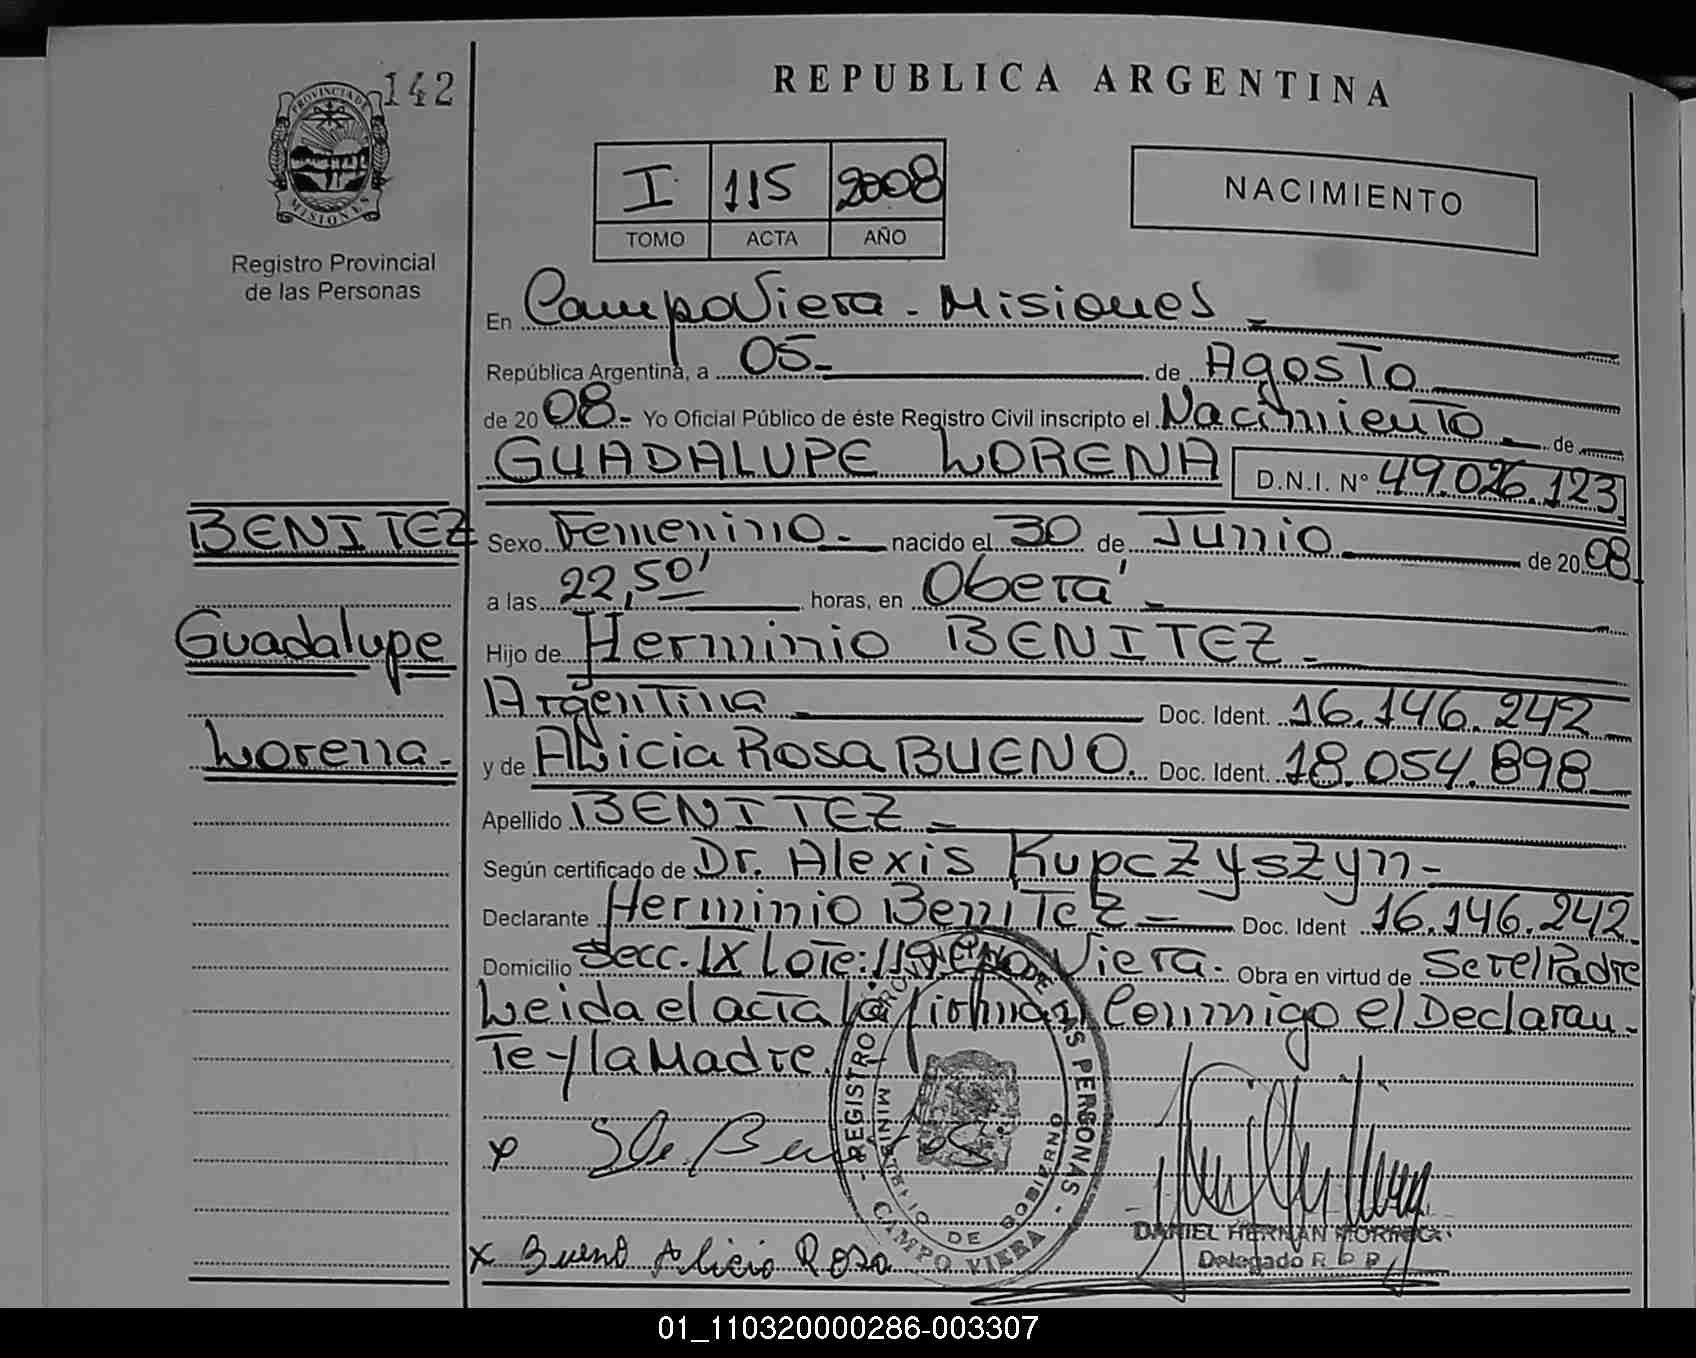 142
REPUBLICA ARGENTINA
PROVINCIA DE
MISIONES
I 115 2008
TOMO ACTA AÑO
NACIMIENTO
Registro Provincial
de las Personas
En Campo Viera - Misiones
República Argentina, a 05- de Agosto
de 2008- Yo Oficial Público de éste Registro Civil inscripto el Nacimiento de
GUADALUPE LORENA D.N.I. Nº 49.026.123
BENITEZ
Sexo Femenino- nacido el 30 de Junio de 2008
a las 22,50' horas, en Oberá
Guadalupe
Hijo de Herminio BENITEZ
Argentina Doc. Ident. 16.146.242
Lorena.
y de Alicia Rosa BUENO Doc. Ident. 18.054.898
Apellido BENITEZ
Según certificado de Dr. Alexis Kupczyszyn
Declarante Herminio Benitez Doc. Ident 16.146.242
Domicilio Secc. IX Lote: Viera. Obra en virtud de Ser el Padre
Leida el acta la firman Conmigo el Declaran-
te y la Madre.
REGISTRO PROVINCIAL DE LAS PERSONAS
MINISTERIO DE GOBIERNO
CAMPO VIERA
x Bueno Alicia Rosa
DANIEL HERNAN
Delegado R P P
01_110320000286-003307